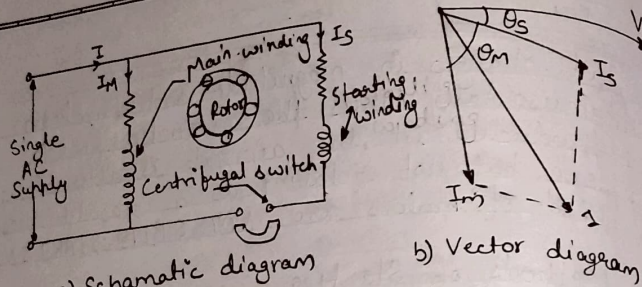 I
I_M
Main winding
I_S
Rotor
Starting
winding
Single
AC
Supply
Centrifugal switch
Schamatic diagram
V
θ_S
θ_M
I_S
I_m
I
b) Vector diagram